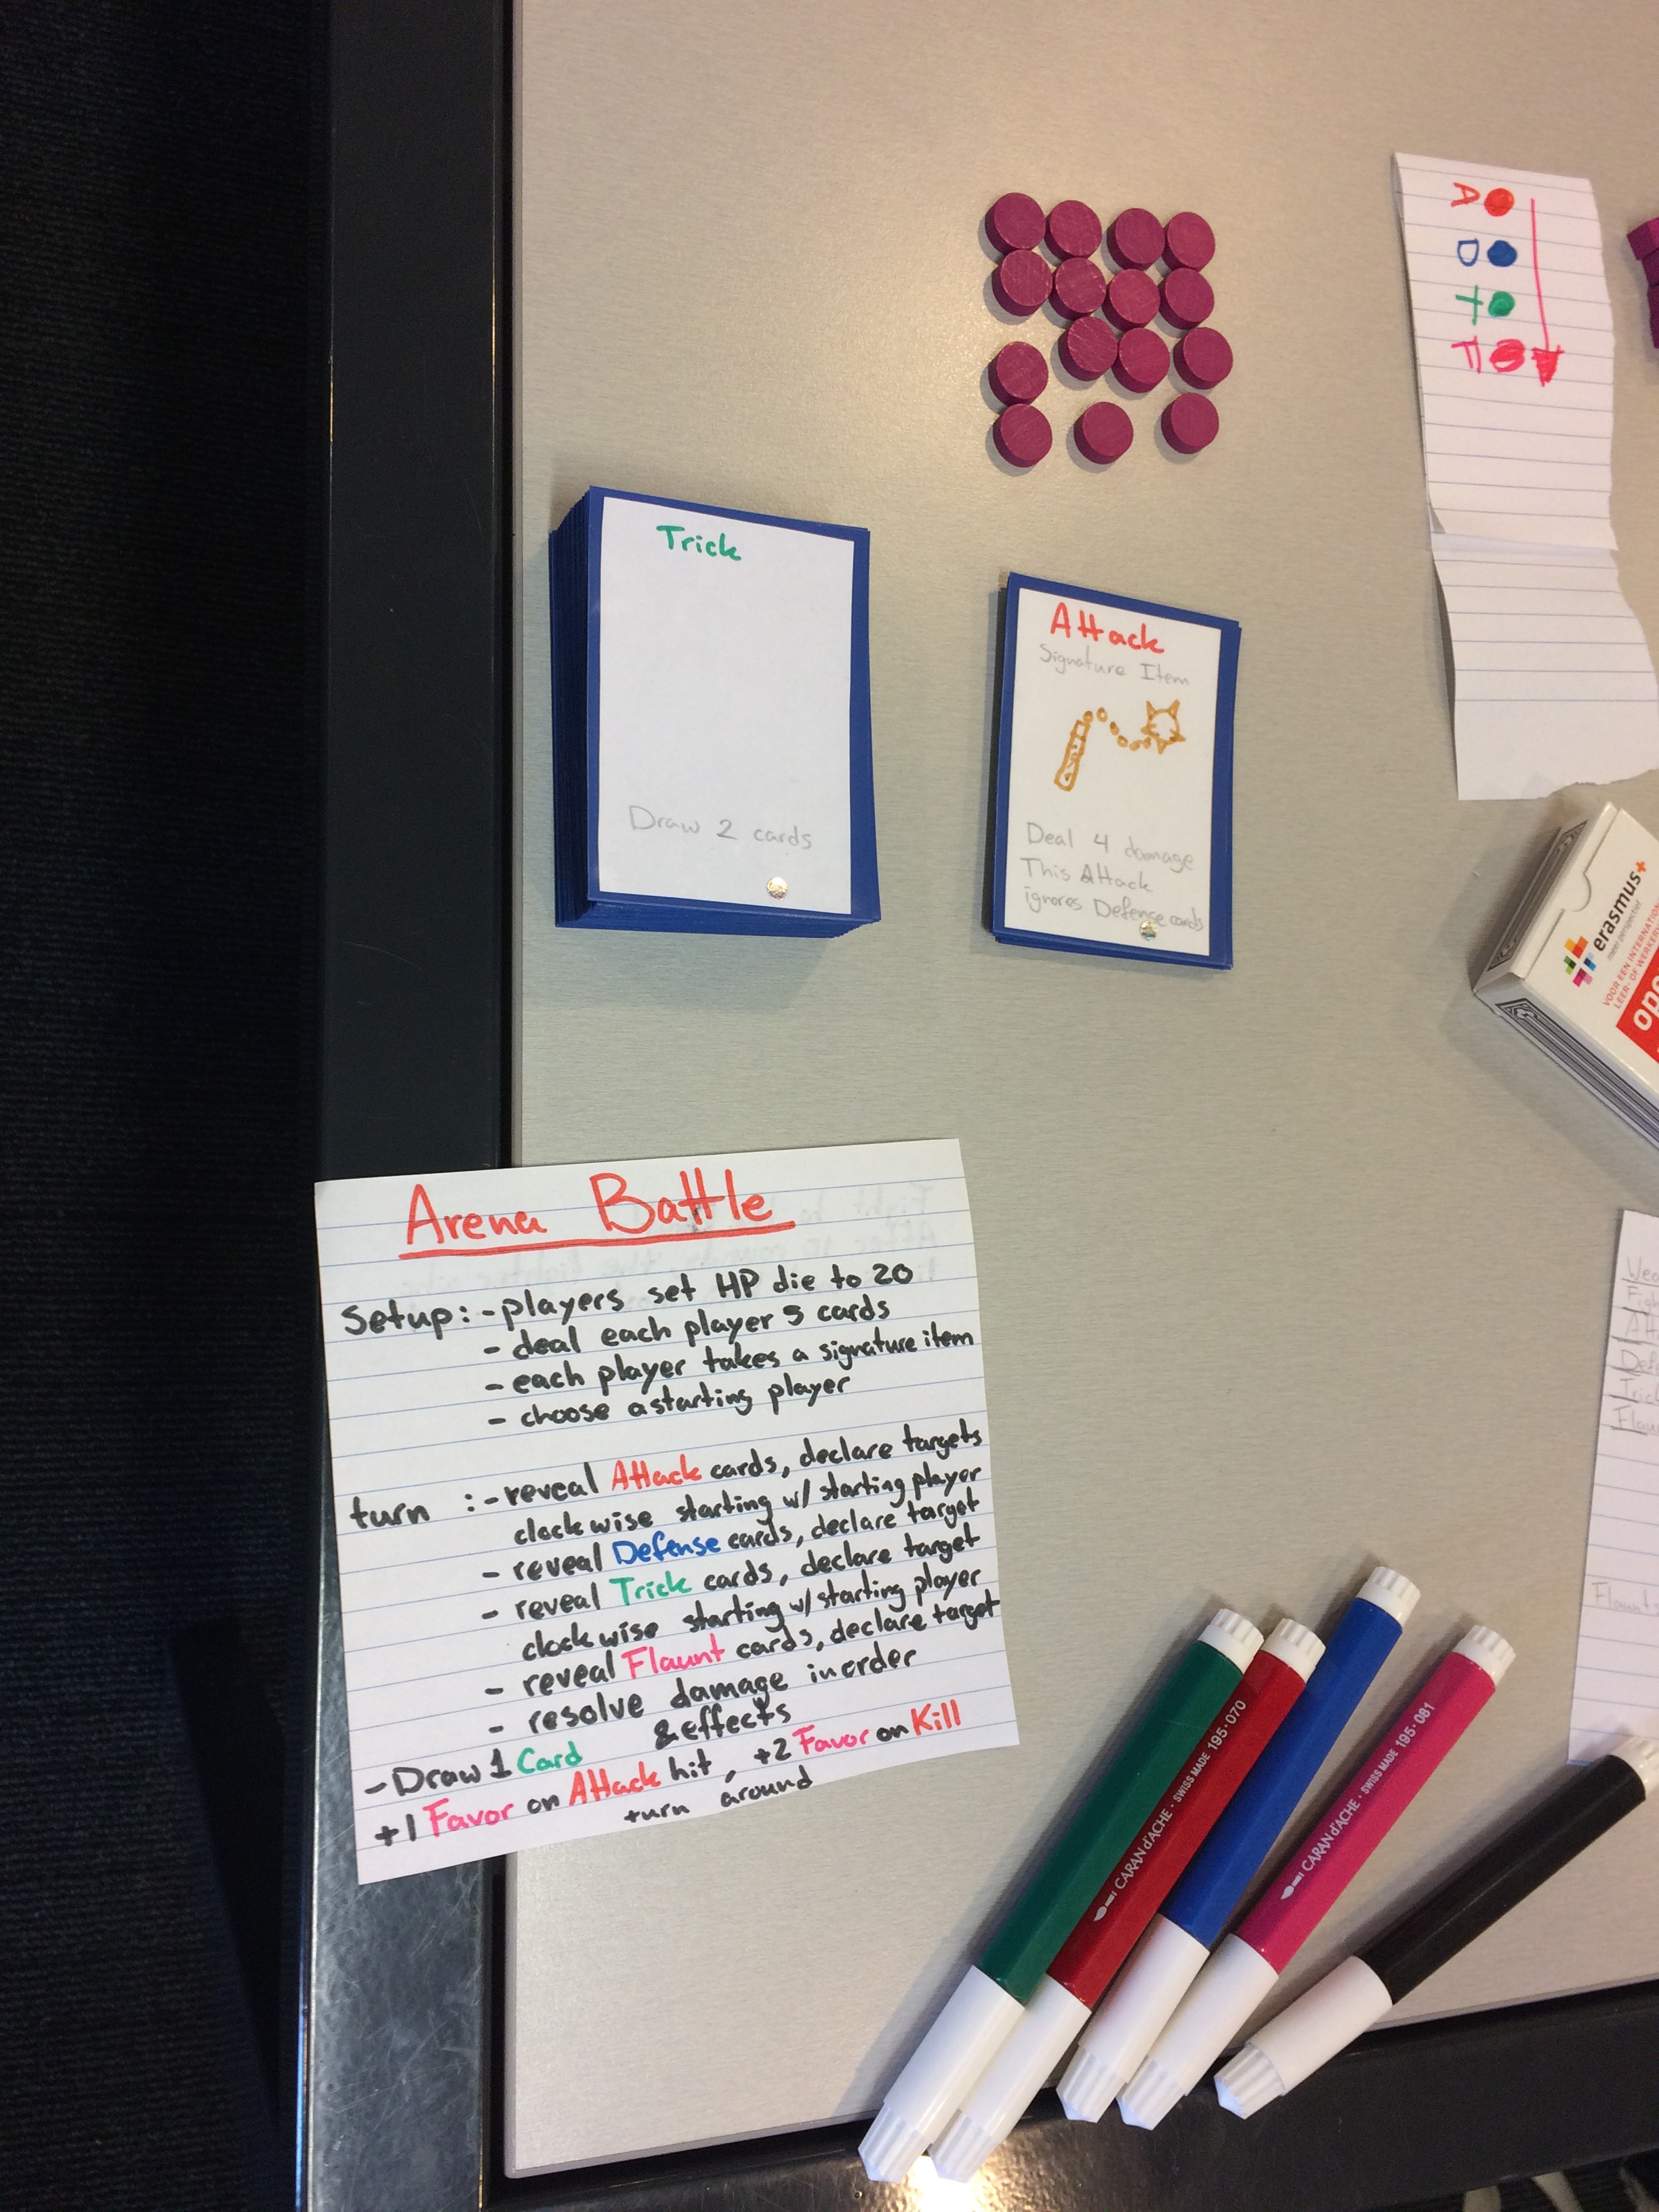 A
D
T
F
Trick
Draw 2 cards
Attack
Signature Item
Deal 4 damage
This Attack
ignores Defense cards
erasmus+
meer perspectief
VOOR EEN
LEER- OF
Arena Battle
setup: - players set HP die to 20
- deal each player 5 cards
- each player takes a signature item
- choose a starting player
turn : - reveal Attack cards, declare targets
clockwise starting w/ starting player
- reveal Defense cards, declare target
- reveal Trick cards, declare target
clockwise starting w/ starting player
- reveal Flaunt cards, declare target
- resolve damage in order
& effects
- Draw 1 Card
+1 Favor on Attack hit, +2 Favor on Kill
turn around
Flaunts
CARAN d'ACHE · SWISS MADE 195-070
CARAN d'ACHE · SWISS MADE 195-081